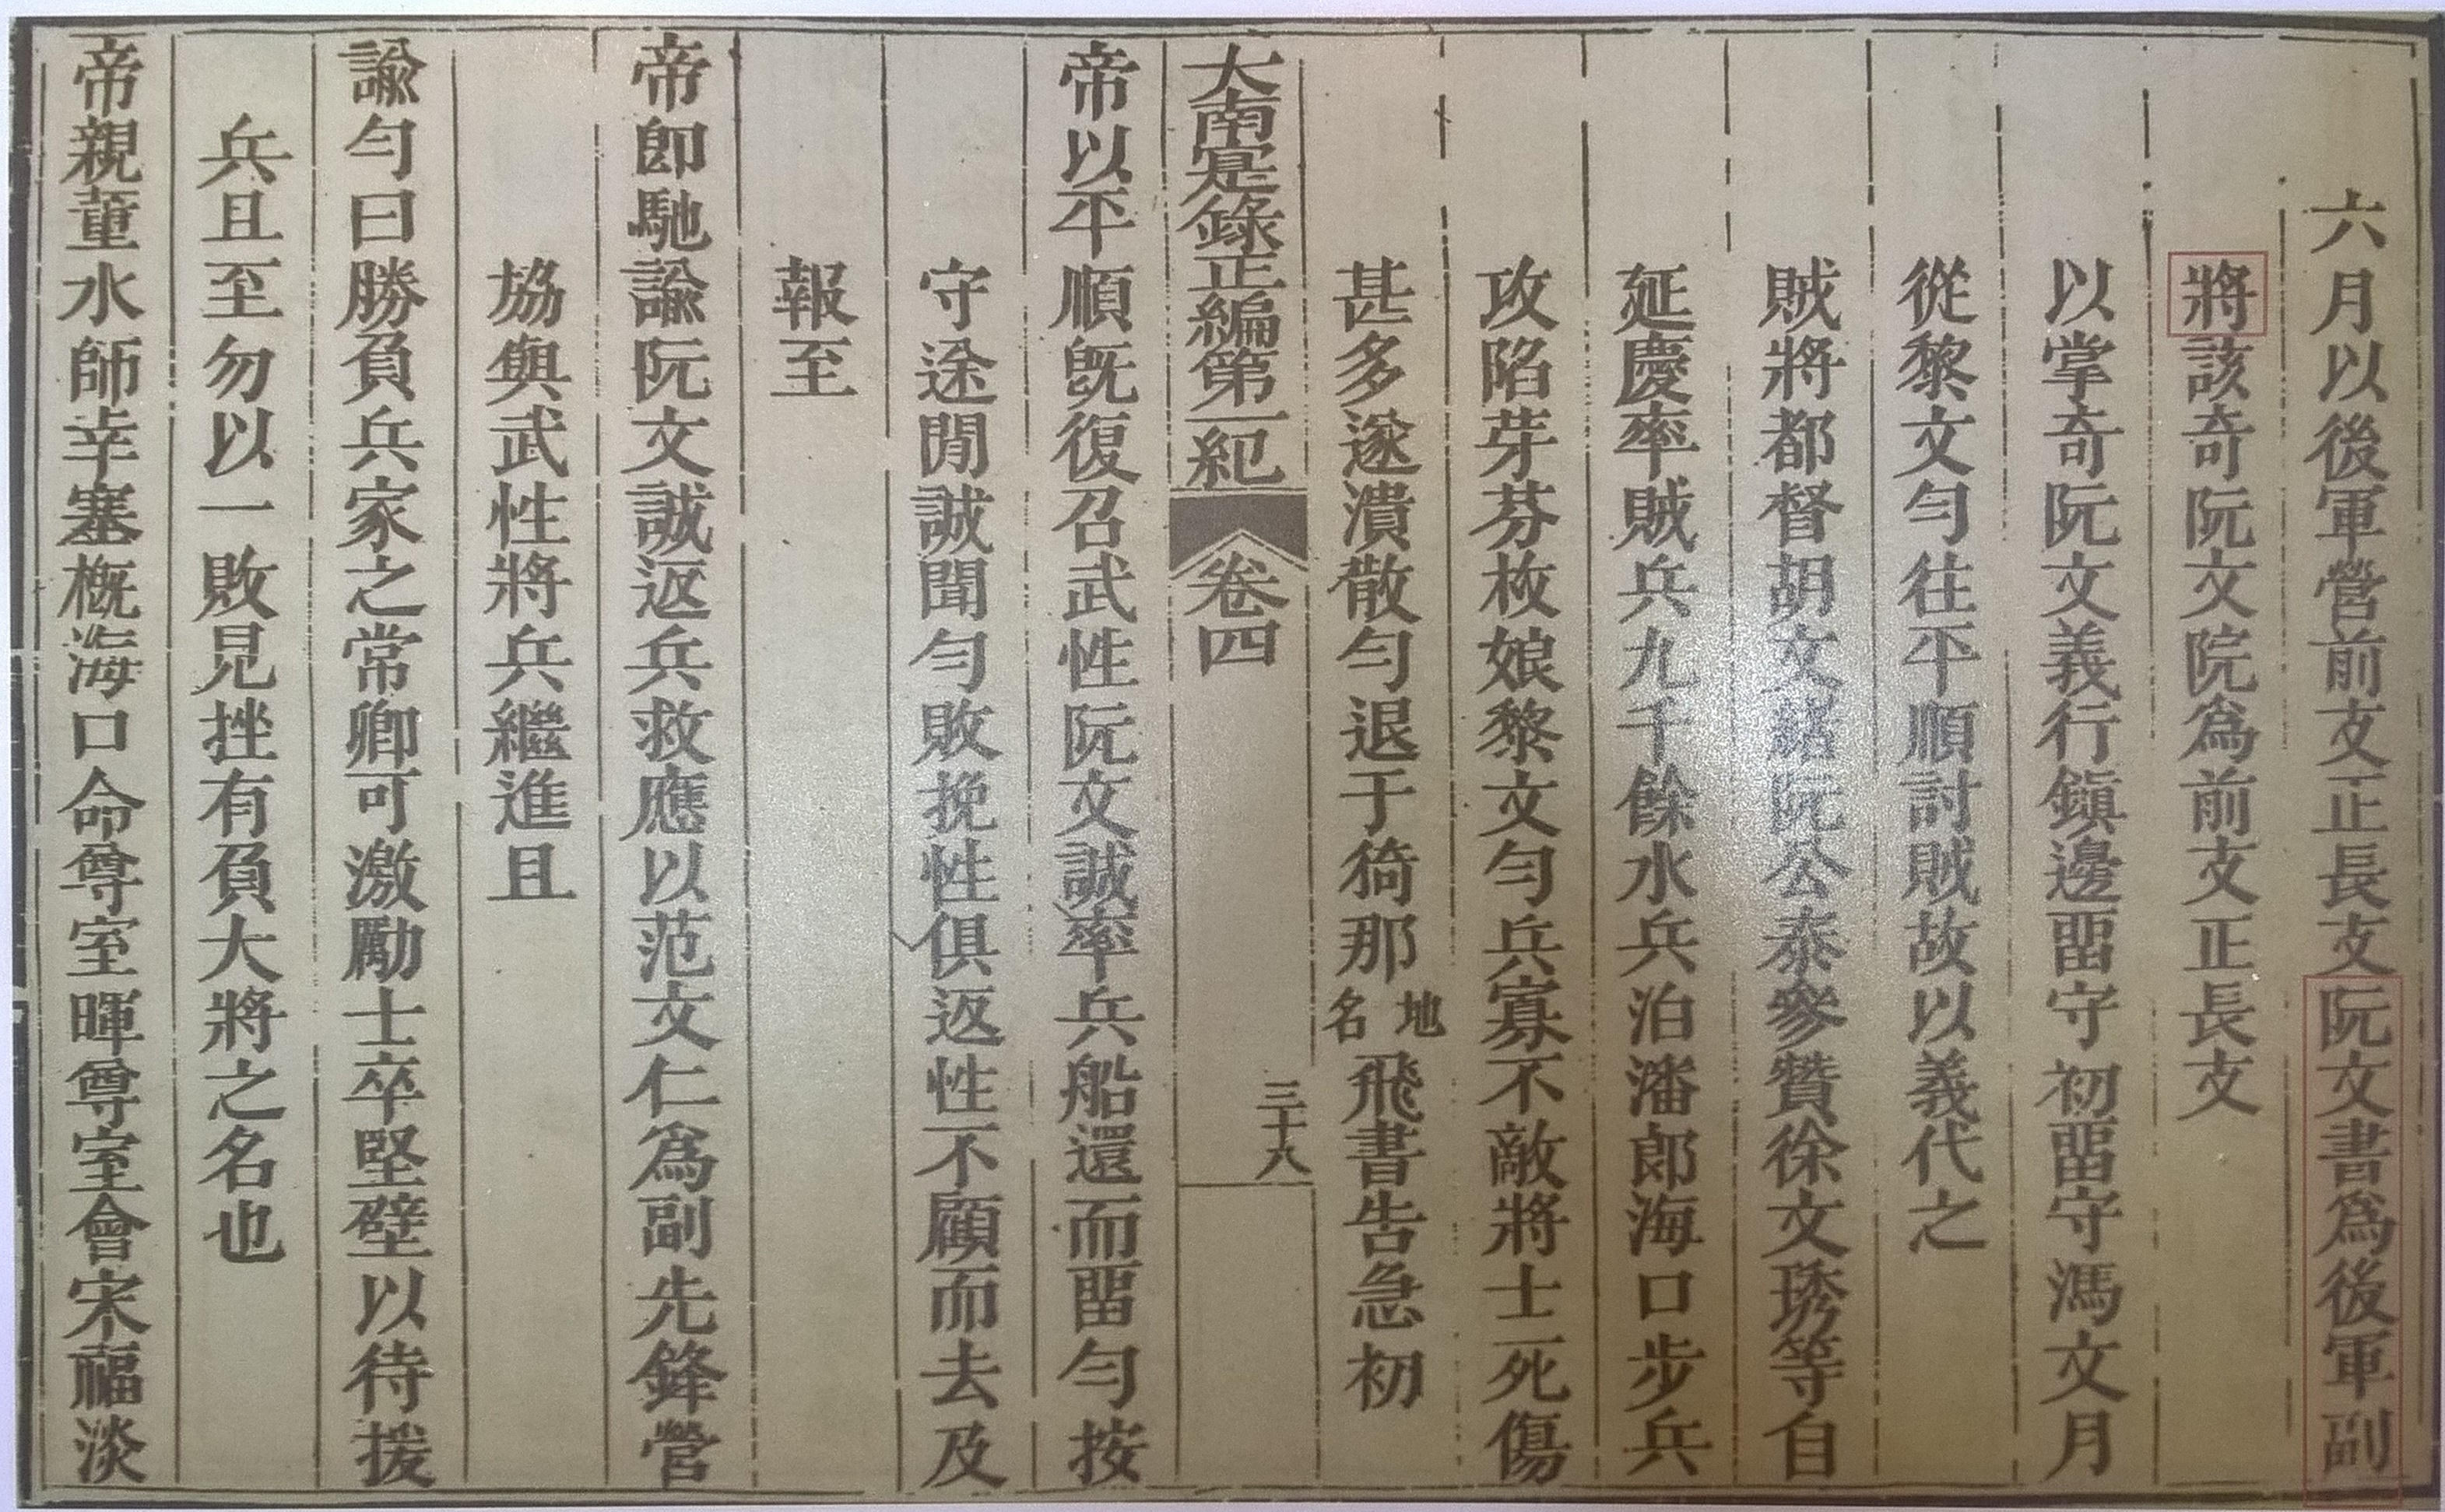 六月以後軍營前支正長支阮文書爲後軍副
將該奇阮文院爲前支正長支
以掌奇阮文義行鎭邊畱守初畱守馮文月
從黎文匀往平順討賊故以義代之
賊將都督胡文鍩阮公泰參贊徐文琇等自
延慶率賊兵九千餘水兵泊潘郎海口步兵
攻陷芽芬枚娘黎文匀兵寡不敵將士死傷
甚多遂潰散匀退于猗那地名飛書告急初
大南寔錄正編第一紀 卷四 三十八
帝以平順旣復召武性阮文誠率兵船還而畱匀按
守途閒誠聞匀敗挽性俱返性不顧而去及
報至
帝卽馳諭阮文誠返兵救應以范文仁爲副先鋒營
協與武性將兵繼進且
諭匀曰勝負兵家之常卿可激勵士卒堅壁以待援
兵且至勿以一敗見挫有負大將之名也
帝親董水師幸塞概海口命尊室暉尊室會宋福淡